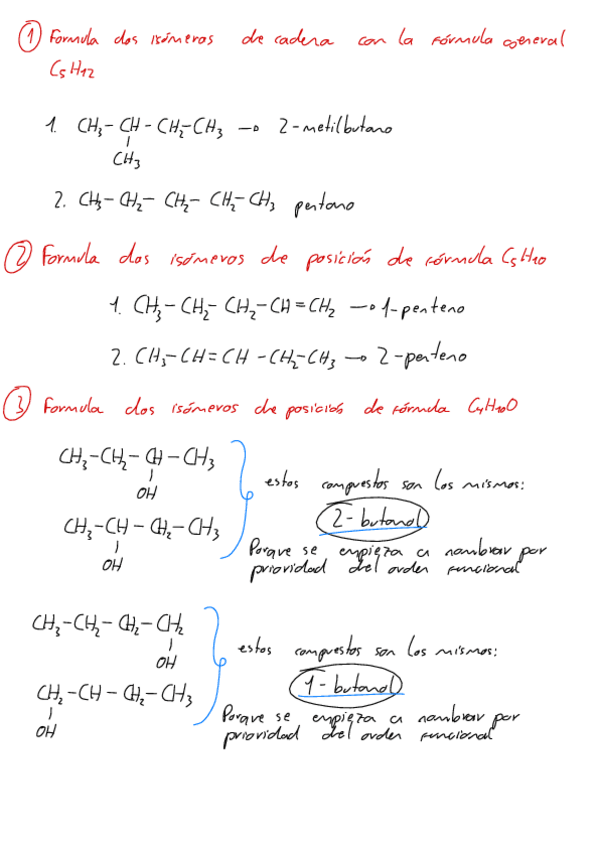 ① Formula dos isómeros de cadena con la fórmula general
C5H12
1. CH3-CH-CH2-CH3 → 2-metilbutano
CH3
2. CH3-CH2-CH2-CH2-CH3 pentano
② Formula dos isómeros de posición de fórmula C5H10
1. CH3-CH2-CH2-CH=CH2 → 1-penteno
2. CH3-CH=CH-CH2-CH3 → 2-penteno
③ Formula dos isómeros de posición de fórmula C4H10O
CH3-CH2-CH-CH3
OH
CH3-CH-CH2-CH3
OH
estos compuestos son los mismos:
2-butanol
Porque se empieza a nombrar por
prioridad del orden funcional
CH3-CH2-CH2-CH2
OH
CH2-CH-CH2-CH3
OH
estos compuestos son los mismos:
1-butanol
Porque se empieza a nombrar por
prioridad del orden funcional